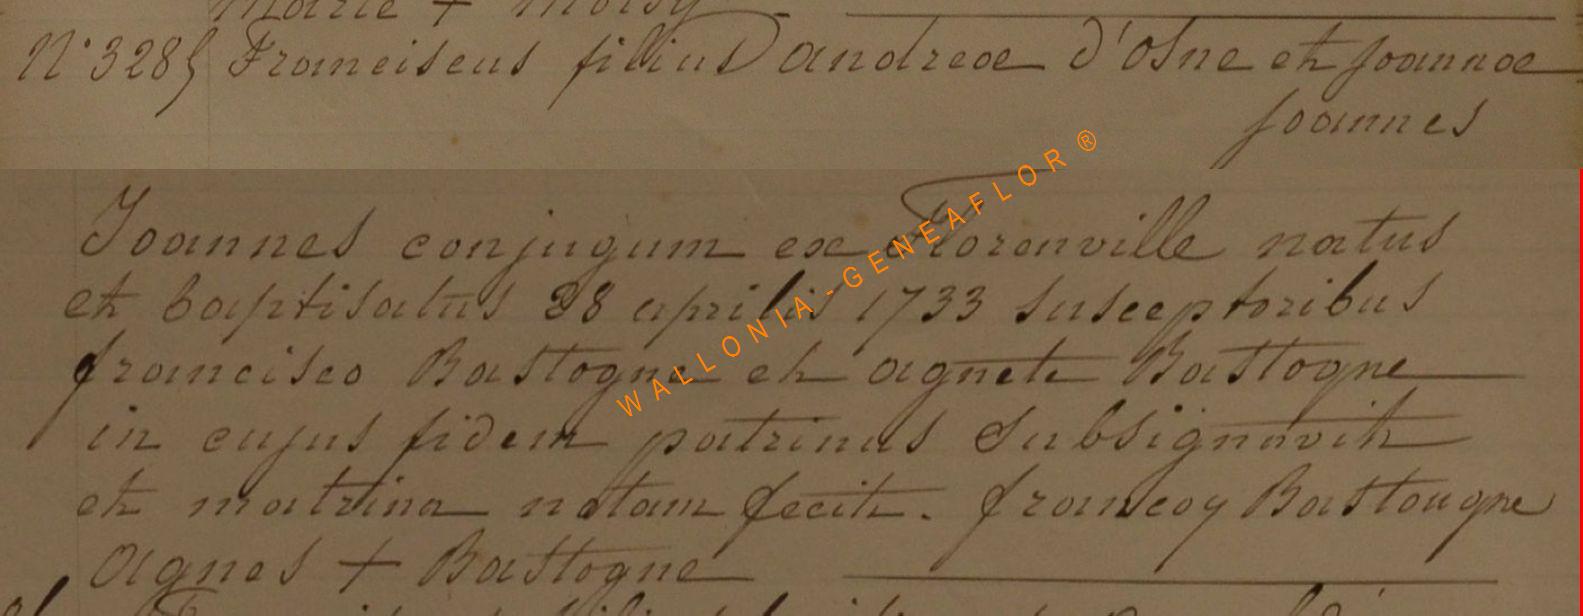 Marie + moisy
N° 328 § Franciscus filius andreae d'osne et joannae
joannes
Joannes conjugum ex Florenville natus
et baptisatus 28 aprilis 1733 susceptoribus
francisco Bastogne et agnete Bastogne
in cujus fidem patrinus subsignavit
et matrina notam fecit. francoy Bastougne
agnes + Bastogne
WALLONIA-GENEAFLOR®